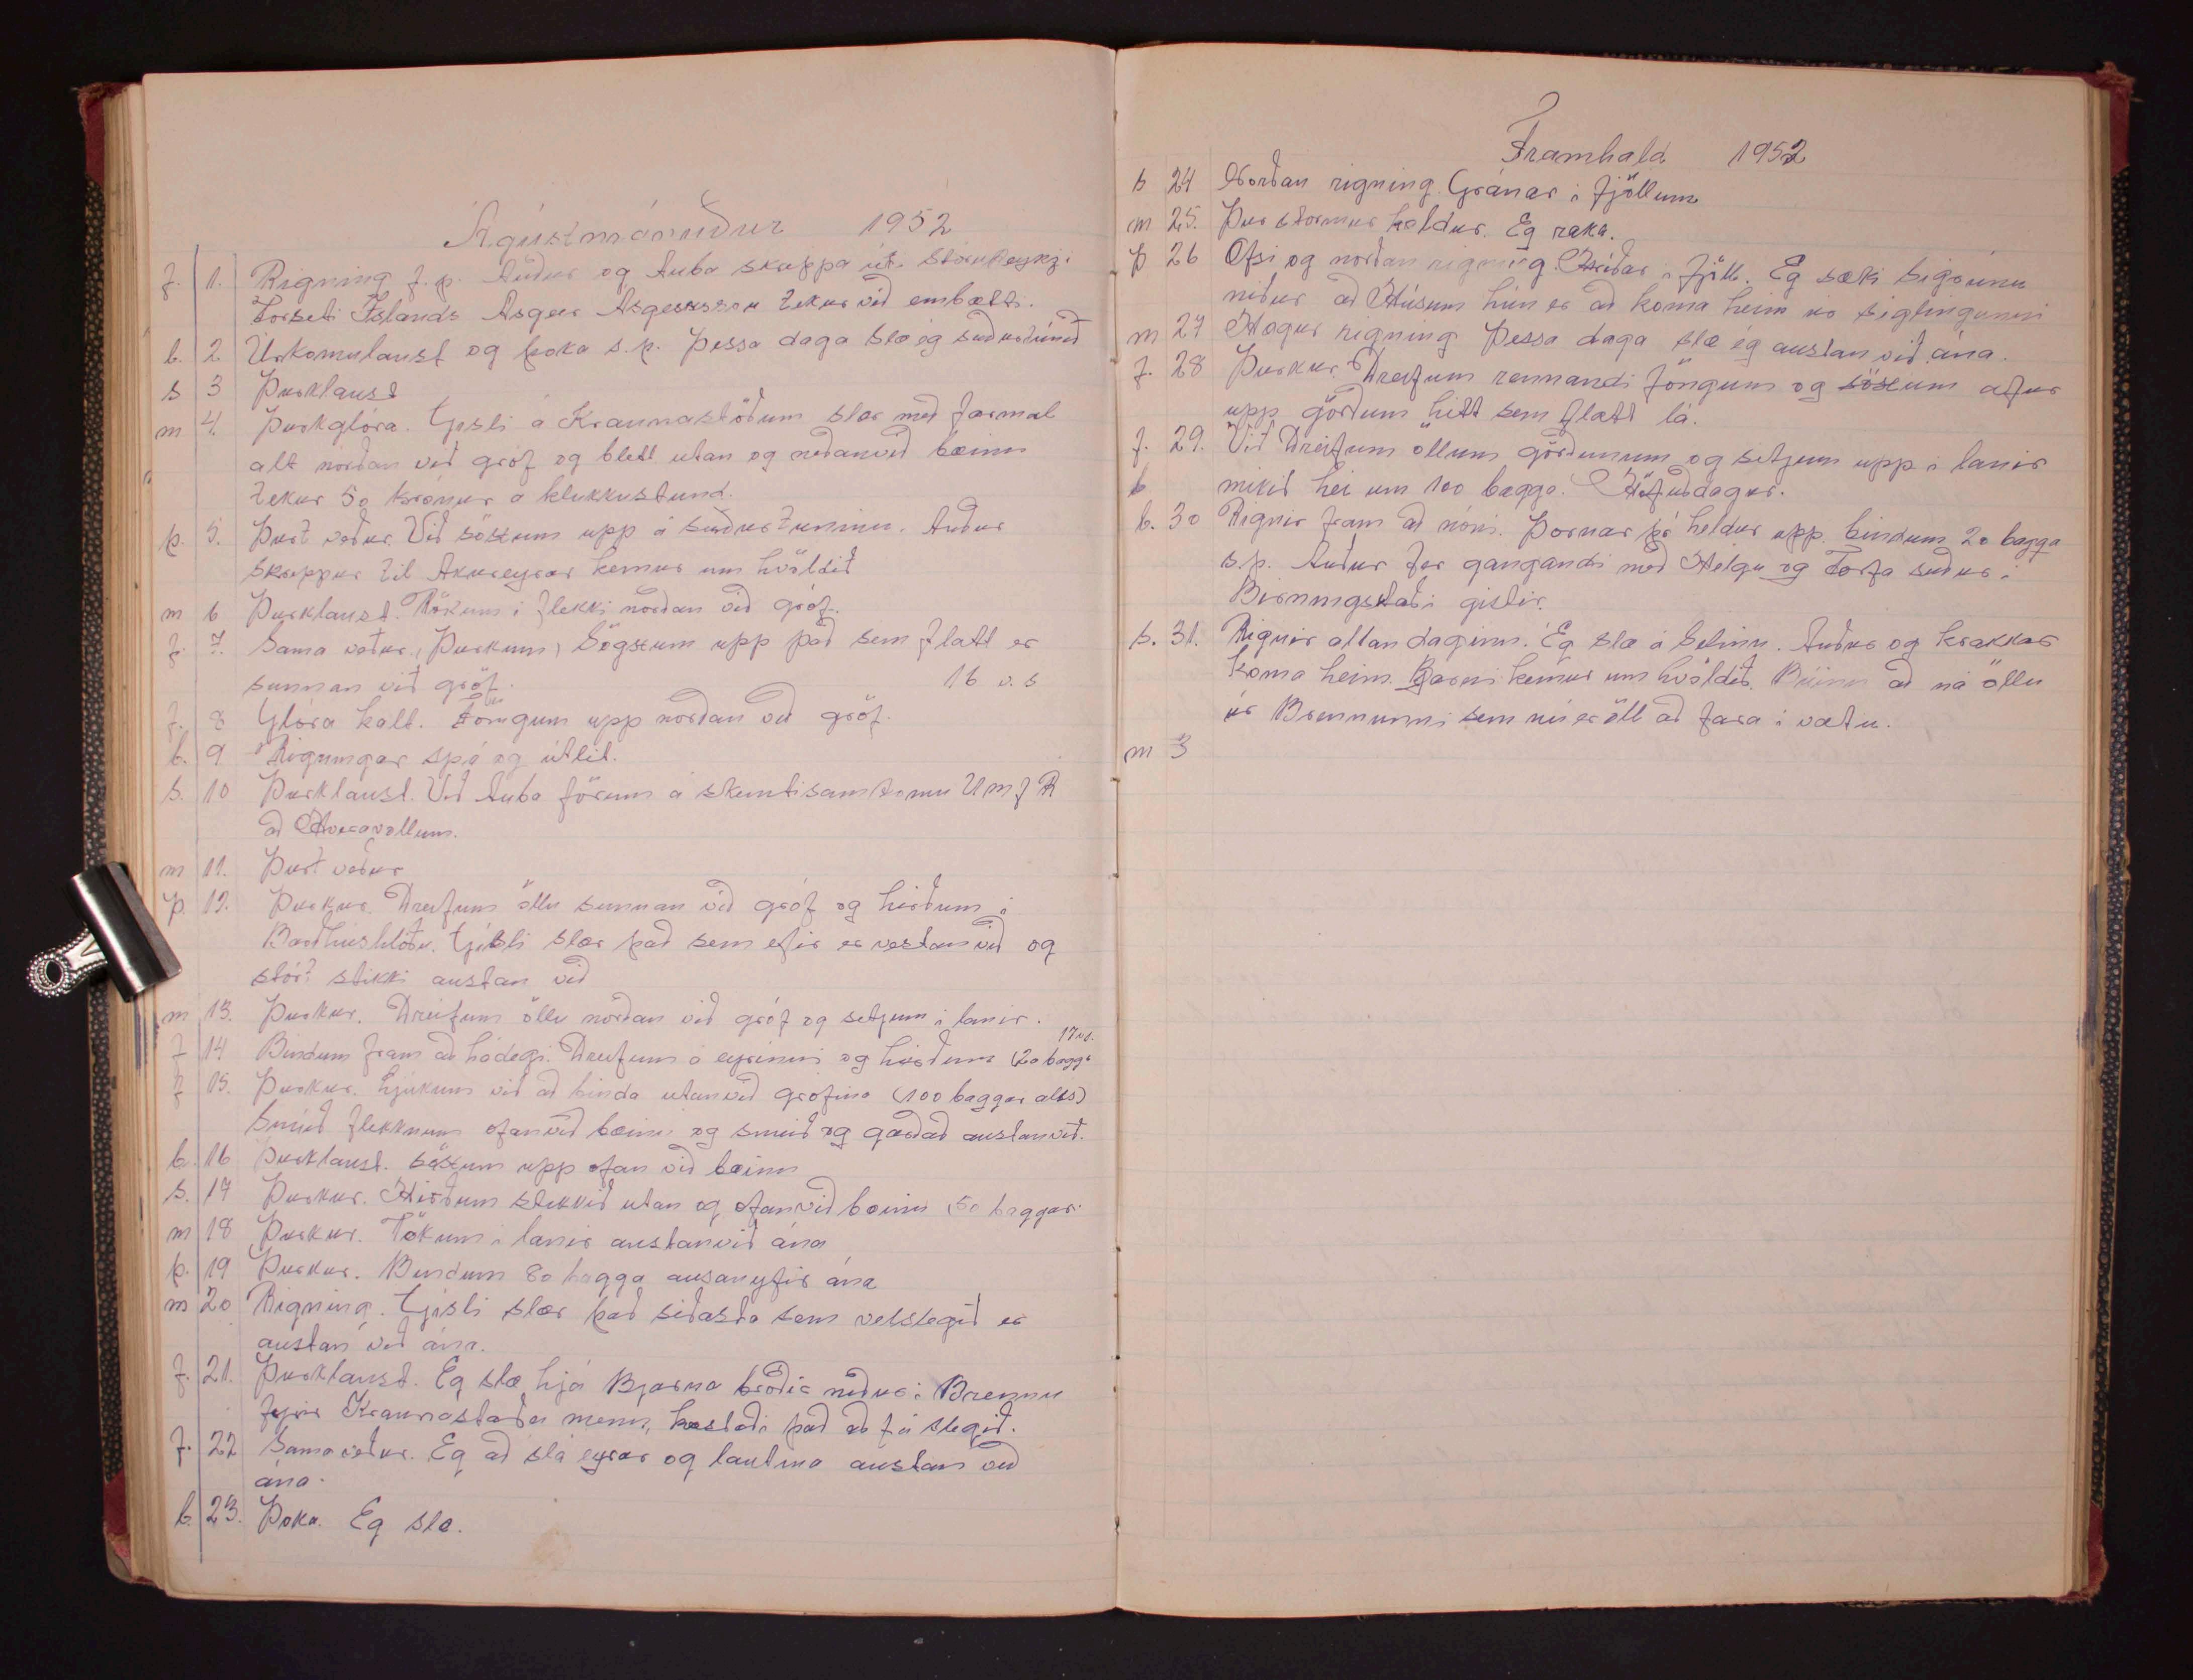 Ágústmánuður 1952
f. 1. Rigning f.p. Auður og Auba skreppa út í Stórureyki.
Forseti Íslands Asgeir Asgeirsson tekur við embætti.
l. 2 Úrkomulaust og þoka s.p. Þessa daga slæ ég suðurtúnið
s 3 Þurklaust
m 4. Þurkglóra. Gísli á Kraunastöðum slær með farmal
alt norðan við gróf og blett utan og neðanvið bæinn
tekur 50 krónur á klukkustund.
þ. 5. Þurt veður. Við söxum upp á suðurtuninu. Auður
skreppur til Akureyrar kemur um kvöldið
m 6 Þurklaust. Tökum í flekki norðan við gróf.
f. 7. Sama veður, (Þurkum) Sögsum upp það sem flatt er
sunnan við gróf. 16 v.s
f. 8 Glóra kalt. upp norðan við gróf.
l. 9 Rigningar spá og útlit.
s. 10 Þurklaust. Við Auba förum á skemtisamkomu Umf R
að Hveravöllum.
m 11. Þurt veður
þ. 12. Þurkur. Dreifum öllu sunnan við gróf og hirðum í
Barðhúshlöðu. Gísli slær það sem eftir er vestan við og
stórt stikki austan við
m 13. Þurkur. Dreifum öllu norðan við gróf og setjum í lanir.
17 v.s.
f 14 Bindum fram að hádegi. Dreifum á eyrinni og hirðum (20 bagga
f 15. Þurkur. Ljúkum við að binda utanvið grófina (100 baggar alls)
Snúið flekknum ofanvið bæinn og snúið og garðað austanvið.
l. 16 Þurklaust. Söxum upp ofan við bæinn
s. 17 Þurkur. Hirðum stekkið utan og ofanvið bæinn 50 baggar.
m 18 Þurkur. Tökum í lanir austanvið ána
þ. 19 Þurkur. Bindum 80 bagga ausanyfir ána
m 20 Rigning. Gísli slær það siðasta sem velslegið er
austan við ána.
f. 21. Þurklaust. Eg slæ hjá Bjarna bróðir niður í Brennu
fyrir Kraunastaða menn, kostaði það að fá slegið.
f. 22 Sama veður. Eg að slá eyrar og lautina austan við
ána.
l. 23. Þoka. Eg slæ.
Framhald 1952
s 24 Norðan rigning. Gránar í fjöllum
m 25. Þur stormur heldur. Eg raka.
þ 26 Ofsi og norðan rigning. Hríðar í fjöll. Eg sæki Sigrúnu
niður að Húsum hún er að koma heim úr siglingunni
m 27 Hægur rigning Þessa daga slæ ég austan við ána.
f. 28 Þurkur. Dreifum rennandi föngum og söxum aftur
upp görðum hitt sem flatt lá.
f. 29. Við Dreifum öllum görðunum og setjum upp í lanir
mikið hei um 100 bagga. Höfuðdagur.
l. 30 Rignir fram að nóni. Þornar þó heldur upp. bindum 20 bagga
s.p. Auður fer gangandi með Helgu og Torfa suður í
Birningstaði gistir.
s. 31. Rignir allan daginn. Eg slæ á Selinu. Auður og krakkar
koma heim. Bjarni kemur um kvöldið. Búinn að ná öllu
úr Brennunni sem nú er öll að fara í vatn.
m 3